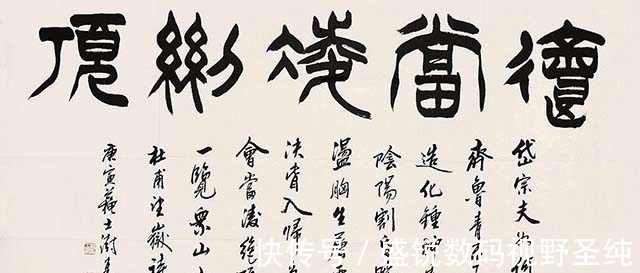 會當凌絕頂
岱宗夫如
齊魯青
造化鍾
陰陽割
盪胸生
決眥入歸
會當凌絕
一覽眾山
杜甫望嶽詩
庚寅蘇士澍
快传号 / 盛锐数码视野圣纯